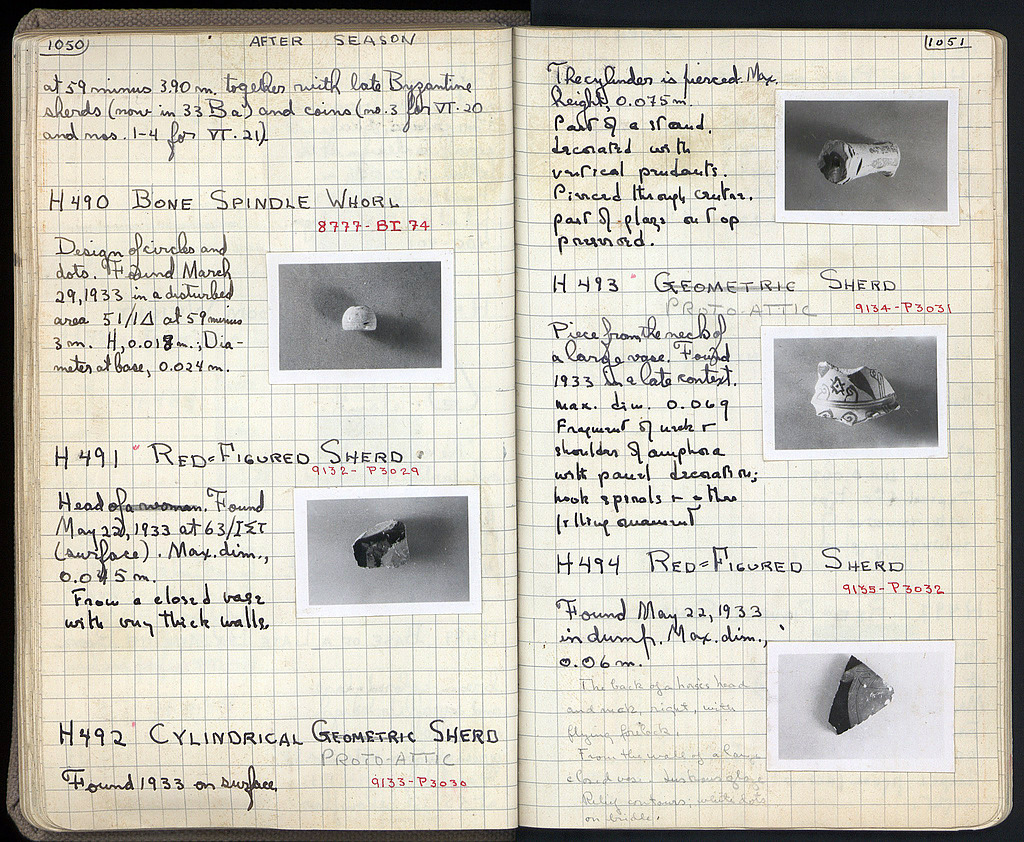 1050
AFTER SEASON
at 59 minus 3.90 m. together with late Byzantine
sherds (now in 33 Ba) and coins (no. 3 for VI·20
and nos. 1-4 for VI·21).
H 490 BONE SPINDLE WHORL
8777-BI 74
Design of circles and
dots. Found March
29, 1933 in a disturbed
area 51/ΙΔ at 59 minus
3 m. H, 0.018 m.; Dia-
meter at base, 0.024 m.
H 491 " RED=FIGURED SHERD
9132- P3029
Head of a woman. Found
May 22, 1933 at 63/ΙΣΤ
(surface). Max. dim.,
0.045 m.
From a closed vase
with very thick walls.
H 492 " CYLINDRICAL GEOMETRIC SHERD
PROTO-ATTIC
Found 1933 on surface.
9133-P3030
1051
The cylinder is pierced. Max.
height, 0.075 m.
Part of a stand,
decorated with
vertical pendants.
Pierced through center,
part of glaze on top
preserved.
H 493 " GEOMETRIC SHERD
PROTO-ATTIC 9134-P3031
Piece from the neck of
a large vase. Found
1933 in a late context.
max. dim. 0.069
Fragment of neck +
shoulder of amphora
with panel decoration;
hook spirals + other
filling ornament
H 494 RED=FIGURED SHERD
9135-P3032
Found May 22, 1933
in dump. Max. dim.,
0.06 m.
The back of a horse's head
and neck, right, with
flying forelock.
From the wall of a large
closed vase. Lustrous glaze.
Relief contours; white dots
on bridle.